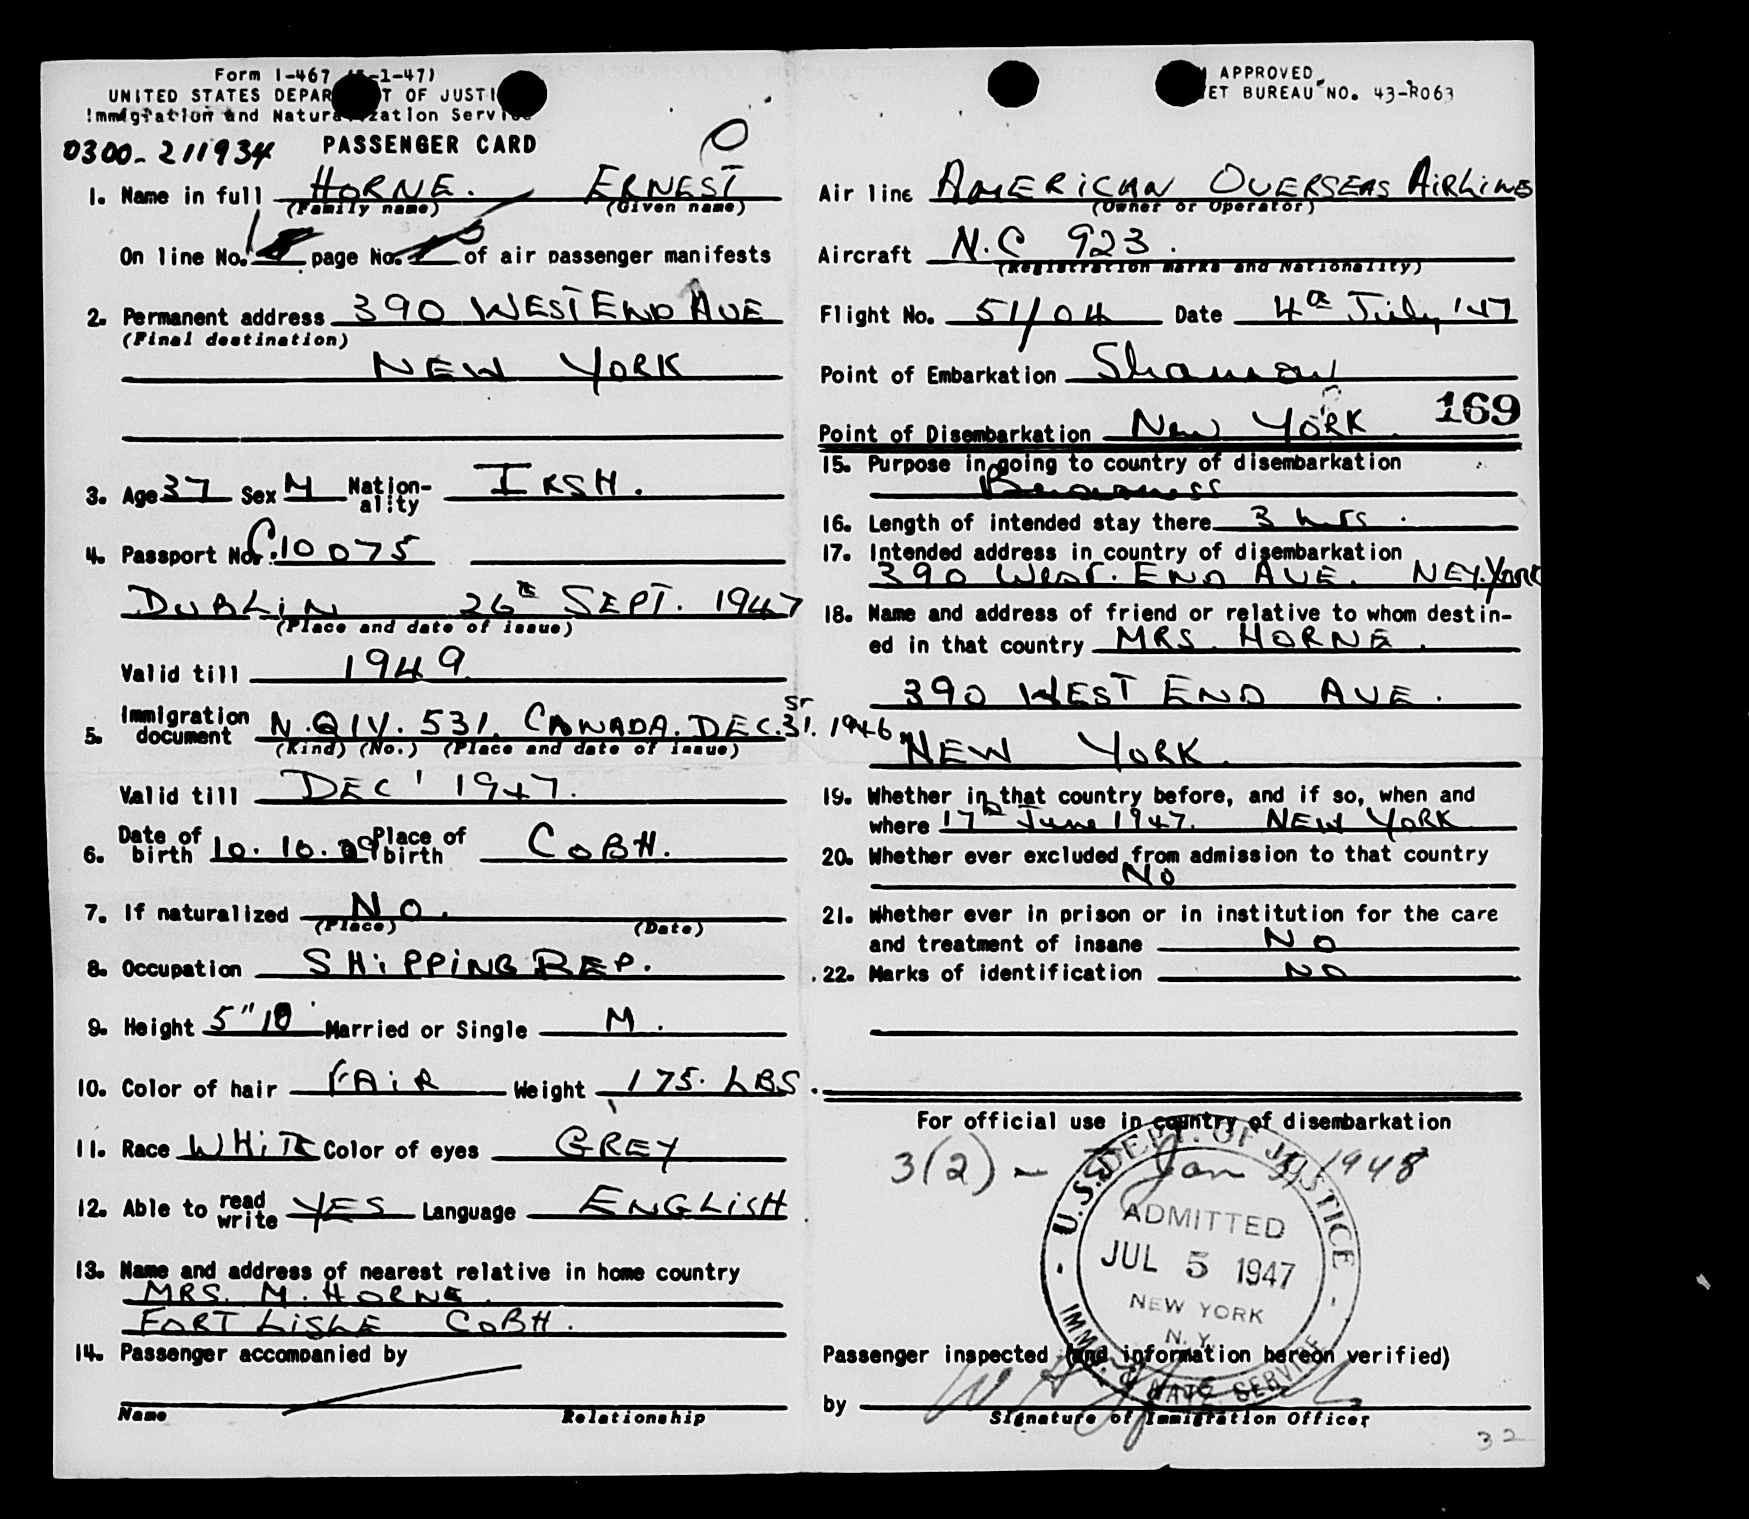 Form I-467 -1-47)
UNITED STATES DEPAR T OF JUSTI
Immigration and Natura zation Service
0300-211934 PASSENGER CARD
1. Name in full HORNE. ERNEST
(Family name) (Given name)
On line No. page No. of air passenger manifests
2. Permanent address 390 WEST END AVE
(Final destination)
NEW YORK
3. Age 37 Sex M Nation-ality IRSH.
4. Passport No. C10075
DUBLIN 26TH SEPT. 1947
(Place and date of issue)
Valid till 1949
5. Immigration document N.QIV. 531. CANADA. DEC. 31ST. 1946
(Kind) (No.) (Place and date of issue)
Valid till DEC' 1947.
6. Date of birth 10. 10. 09 Place of birth COBH.
7. If naturalized NO.
(Place) (Date)
8. Occupation SHIPPING REP.
9. Height 5"10' Married or Single M.
10. Color of hair FAIR Weight 175. LBS.
11. Race WHITE Color of eyes GREY
12. Able to read write YES Language ENGLISH
13. Name and address of nearest relative in home country
MRS. M. HORNE.
FORT LISLE COBH.
14. Passenger accompanied by
Name Relationship
APPROVED
ET BUREAU NO. 43-R063
Air line AMERICAN OVERSEAS AIRLINES
(Owner or Operator)
Aircraft N.C 923.
(Registration marks and Nationality)
Flight No. 51/04 Date 4th July, '47
Point of Embarkation Shannon
169
Point of Disembarkation New YORK.
15. Purpose in going to country of disembarkation
16. Length of intended stay there 3 .
17. Intended address in country of disembarkation
390 West. END AVE. NEY.YORK
18. Name and address of friend or relative to whom destin-
ed in that country MRS. HORNE.
390 WEST END AVE.
NEW YORK.
19. Whether in that country before, and if so, when and
where 17th June 1947. NEW YORK
20. Whether ever excluded from admission to that country
No
21. Whether ever in prison or in institution for the care
and treatment of insane NO
22. Marks of identification NO
For official use in country of disembarkation
3(2) - Jan 3, 1948
U.S. DEPT. OF JUSTICE
ADMITTED
JUL 5 1947
NEW YORK
N.Y.
IMM. & NATZ. SERVICE
Passenger inspected (and information hereon verified)
by
Signature of Immigration Officer
32